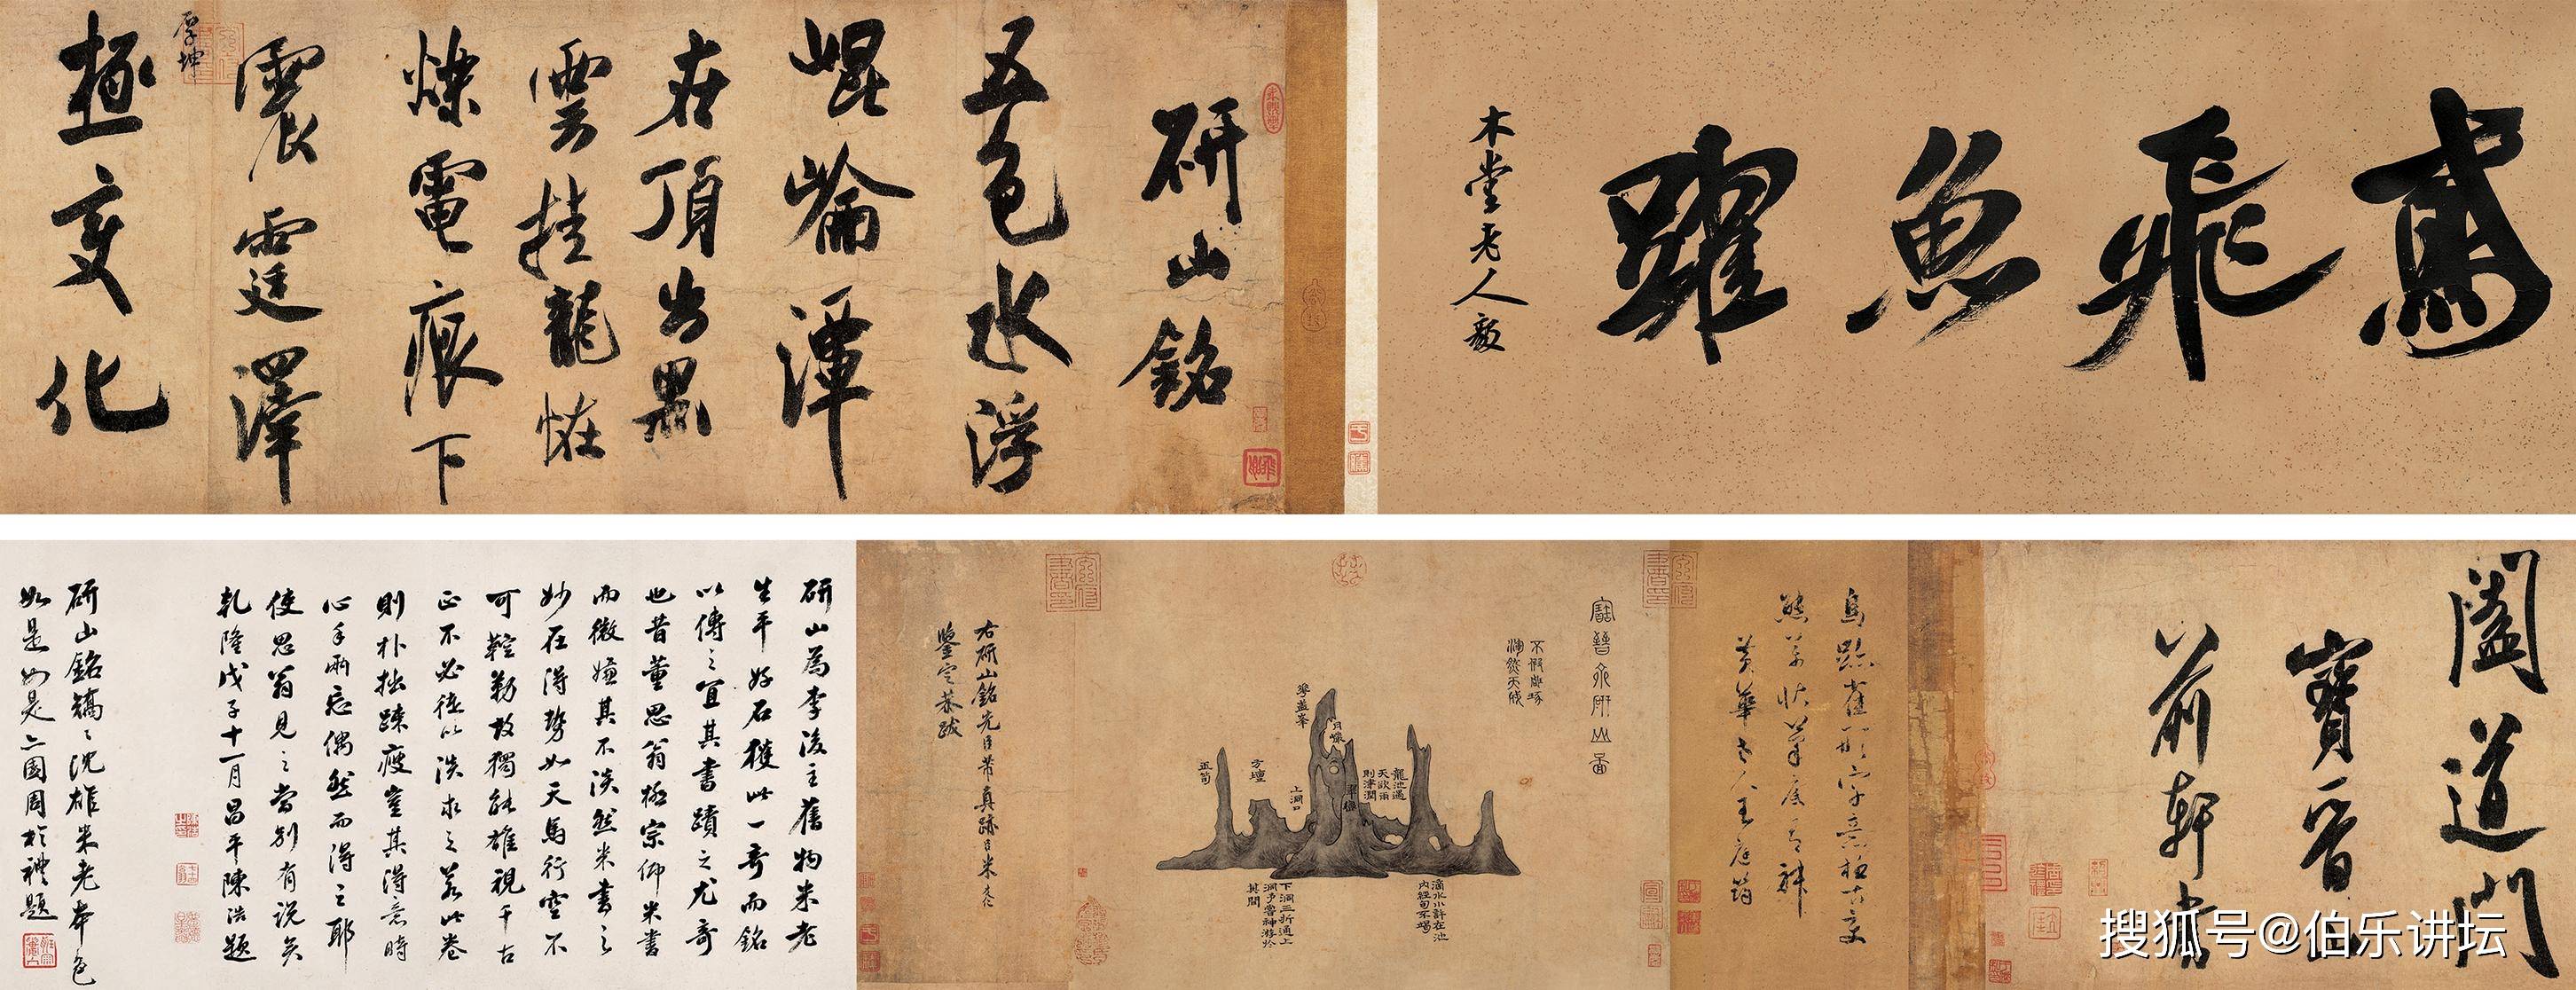 鳶飛魚躍
木堂老人毅
研山銘
五色水浮
崐崘潭
在頂出黑
雲挂龍怪
爍電痕下
震霆澤
厚坤
極變化
闔道門
寶晉山
前軒書
鳥跡雀形字意極古變
態萬狀筆底有神
黃華老人王庭筠
寶晉齋研山圖
不假雕琢
渾然天成
華蓋峯
月巖
龍池遇
天欲雨
則津潤
翠巒
上洞口
方壇
玉筍
滴水小許在池
內經旬不竭
下洞三折通上
洞予嘗神遊於
其間
右研山銘先臣芾真跡臣米友仁
鑒定恭跋
研山為李後主舊物米老
生平好石獲此一奇而銘
以傳之宜其書蹟之尤奇
也昔董思翁極宗仰米書
而微嫌其不淡然米書之
妙在得勢如天馬行空不
可鞚勒故獨能雄視千古
正不必徒以淡求之若此卷
則朴拙疎瘦豈其得意時
心手兩忘偶然而得之耶
使思翁見之當別有說矣
乾隆戊子十一月昌平陳浩題
研山銘矯々沈雄米老本色
如是如是 周於禮題
搜狐号@伯乐讲坛